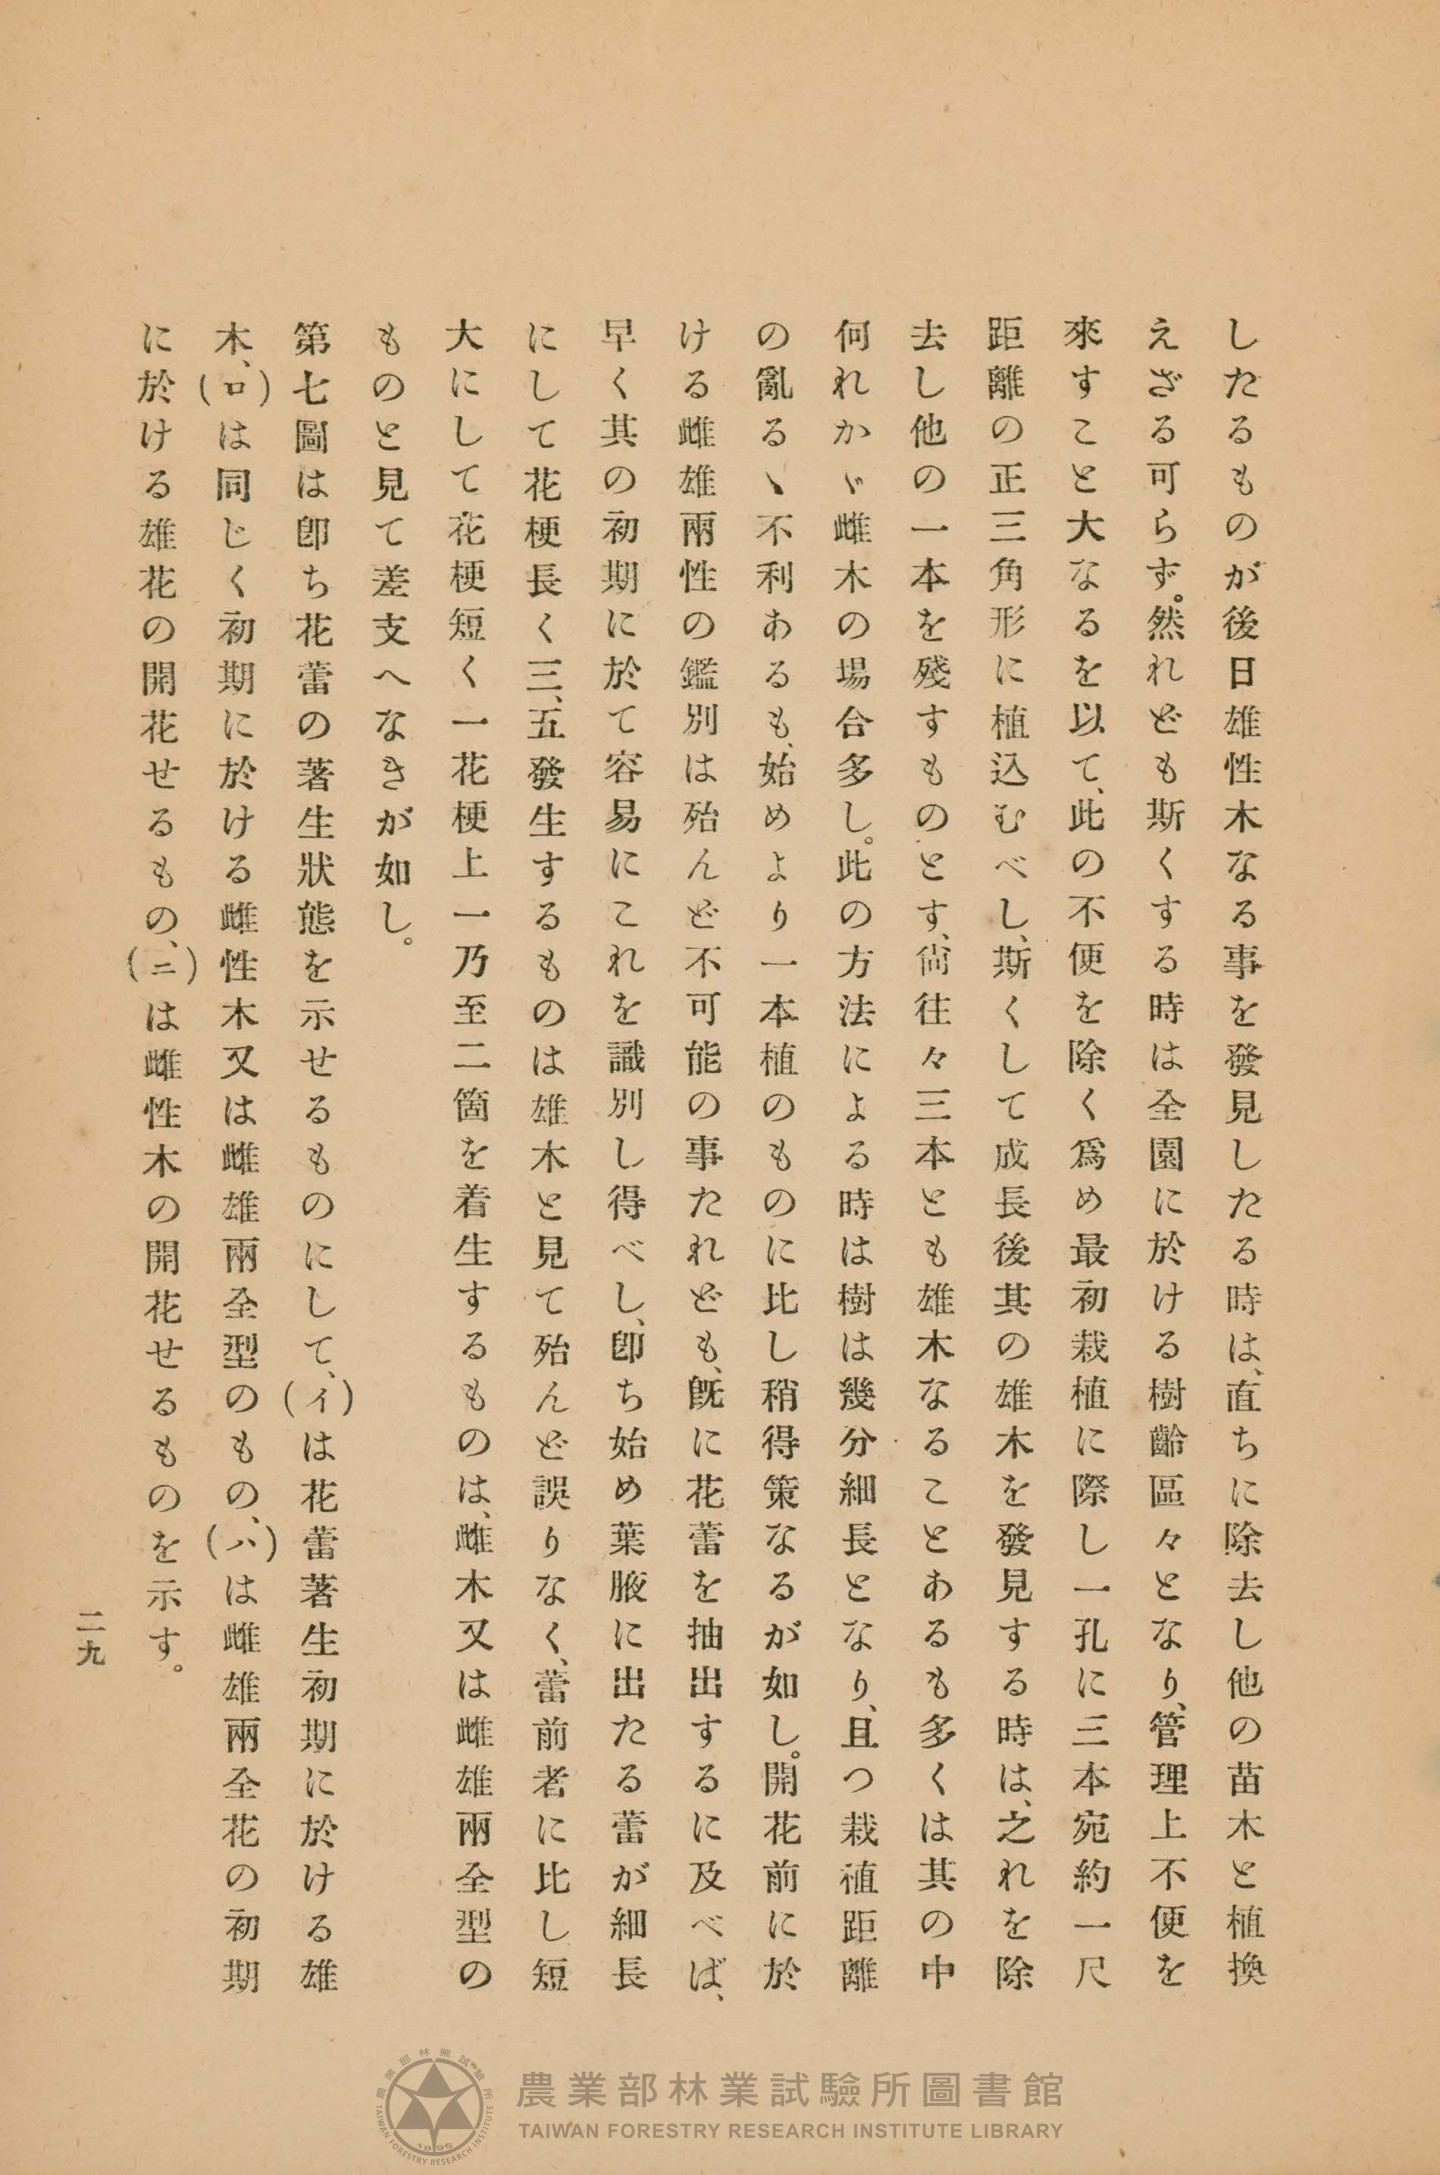 したるものが後日雄性木なる事を發見したる時は、直ちに除去し他の苗木と植換
えざる可らず。然れども斯くする時は全園に於ける樹齡區々となり、管理上不便を
來すこと大なるを以て、此の不便を除く爲め最初栽植に際し一孔に三本宛約一尺
距離の正三角形に植込むべし、斯くして成長後其の雄木を發見する時は、之れを除
去し他の一本を殘すものとす、尙往々三本とも雄木なることあるも多くは其の中
何れかゞ雌木の場合多し。此の方法による時は樹は幾分細長となり、且つ栽植距離
の亂るゝ不利あるも、始めより一本植のものに比し稍得策なるが如し。開花前に於
ける雌雄兩性の鑑別は殆んど不可能の事たれども、旣に花蕾を抽出するに及べば、
早く其の初期に於て容易にこれを識別し得べし、卽ち始め葉腋に出たる蕾が細長
にして花梗長く三、五發生するものは雄木と見て殆んど誤りなく、蕾前者に比し短
大にして花梗短く一花梗上一乃至二箇を着生するものは、雌木又は雌雄兩全型の
ものと見て差支へなきが如し。
第七圖は卽ち花蕾の著生狀態を示せるものにして、(イ)は花蕾著生初期に於ける雄
木、(ロ)は同じく初期に於ける雌性木又は雌雄兩全型のもの、(ハ)は雌雄兩全花の初期
に於ける雄花の開花せるもの、(ニ)は雌性木の開花せるものを示す。
二九
農業部林業試驗所圖書館
TAIWAN FORESTRY RESEARCH INSTITUTE LIBRARY
農業部林業試驗所
TAIWAN FORESTRY RESEARCH INSTITUTE
1896